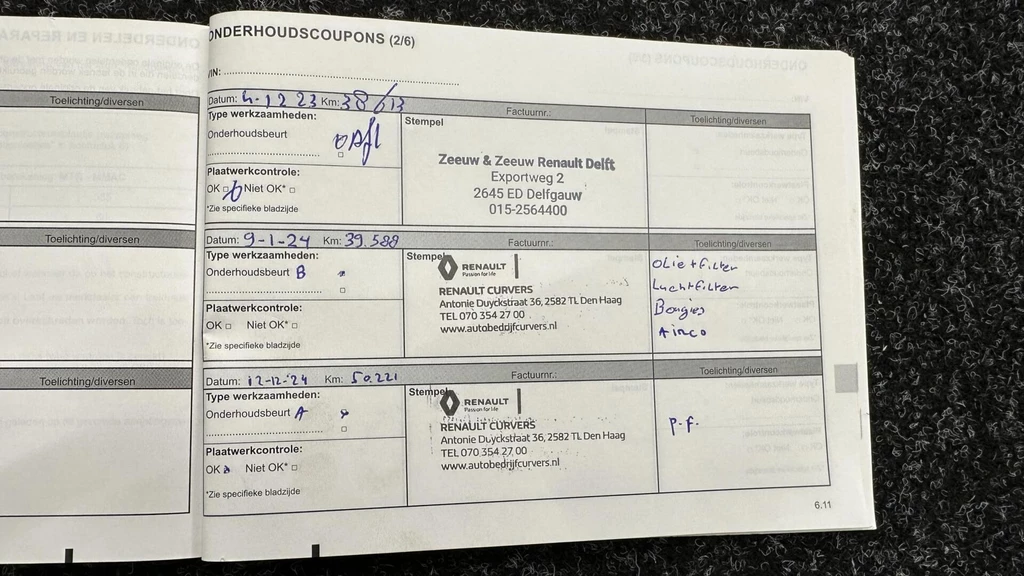 Toelichting/diversen
Toelichting/diversen
Toelichting/diversen
ONDERHOUDSCOUPONS (2/6)
VIN:
Datum: 4-12 23 Km: Factuurnr.: Toelichting/diversen
Type werkzaamheden:
Onderhoudsbeurt
Plaatwerkcontrole:
OK Niet OK*
*Zie specifieke bladzijde
Stempel
Zeeuw & Zeeuw Renault Delft
Exportweg 2
2645 ED Delfgauw
015-2564400
Datum: 9-1-24 Km: 39.588 Factuurnr.: Toelichting/diversen
Type werkzaamheden:
Onderhoudsbeurt B
Plaatwerkcontrole:
OK Niet OK*
*Zie specifieke bladzijde
Stempel
RENAULT
Passion for life
RENAULT CURVERS
Antonie Duyckstraat 36, 2582 TL Den Haag
TEL 070 354 27 00
www.autobedrijfcurvers.nl
Olie+filter
Luchtfilter
Bougies
Airco
Datum: 12-12-'24 Km: 50.221 Factuurnr.: Toelichting/diversen
Type werkzaamheden:
Onderhoudsbeurt A
Plaatwerkcontrole:
OK Niet OK*
*Zie specifieke bladzijde
Stempel
RENAULT
Passion for life
RENAULT CURVERS
Antonie Duyckstraat 36, 2582 TL Den Haag
TEL 070 354 27 00
www.autobedrijfcurvers.nl
P.f.
6.11